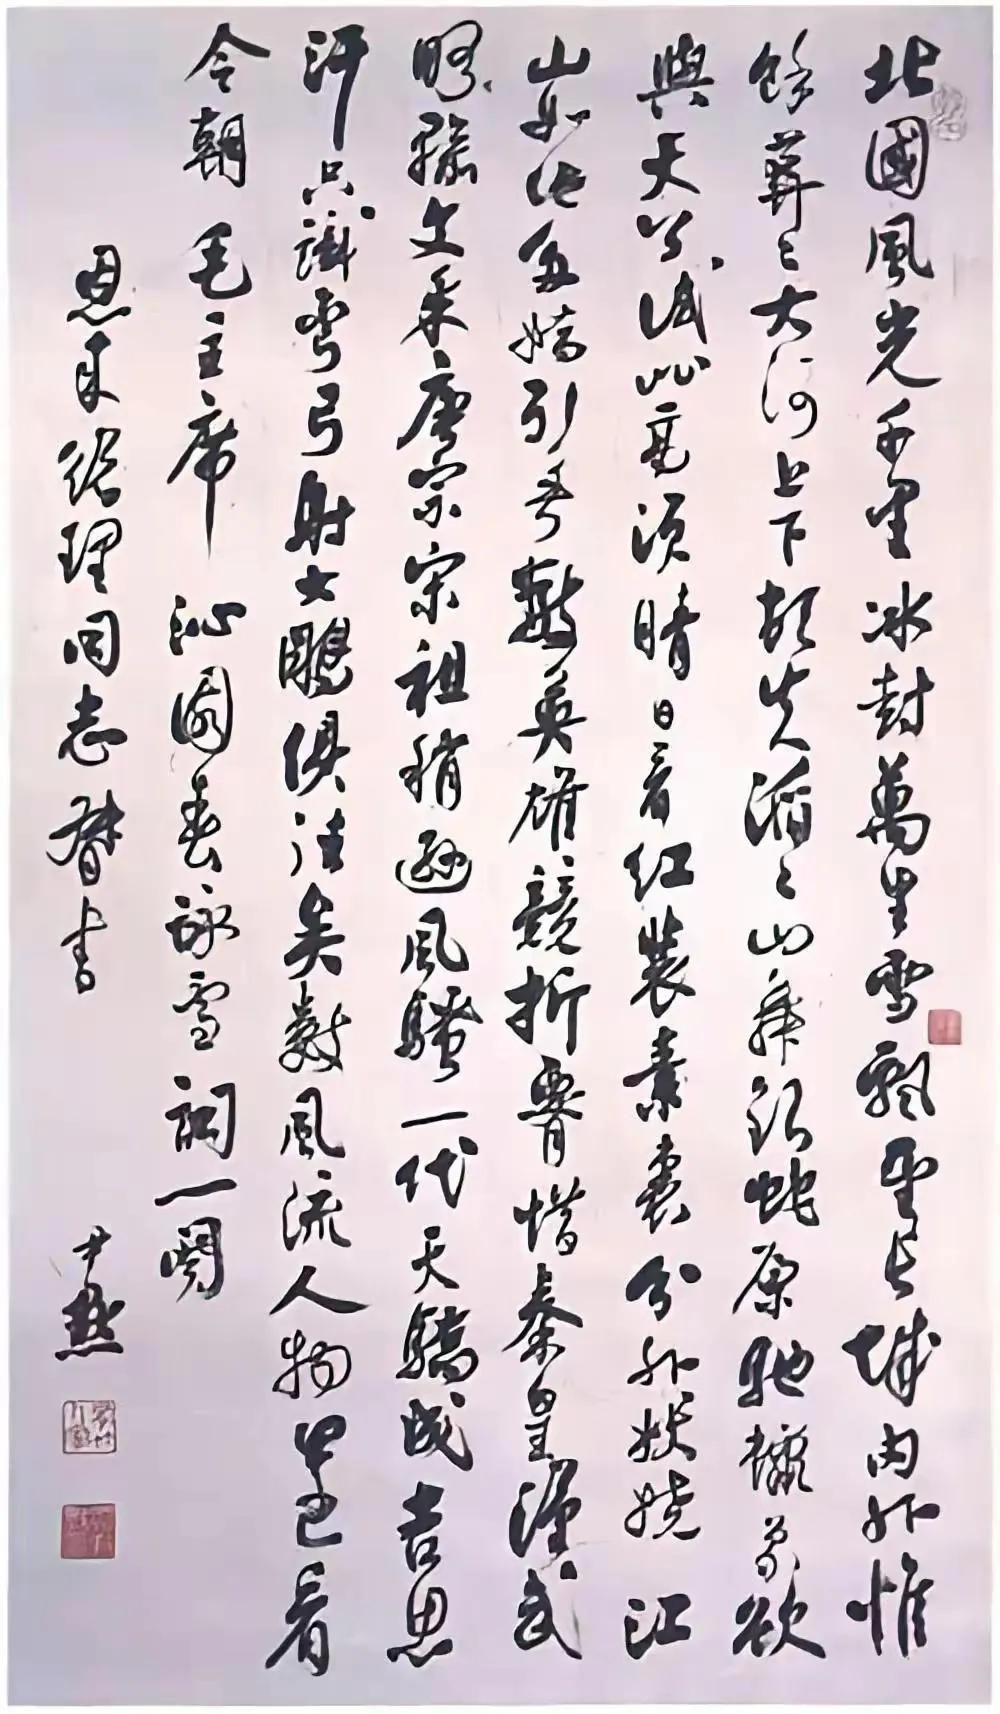 北國風光千里冰封萬里雪飄望長城內外惟
餘莽〻大河上下頓失滔〻山舞銀蛇原馳蠟象欲
與天公試比高須晴日看紅裝素裹分外妖嬈江
山如此多嬌引無數英雄競折腰惜秦皇漢武
略輸文采唐宗宋祖稍遜風騷一代天驕成吉思
汗只識彎弓射大鵰俱往矣數風流人物還看
今朝 毛主席 沁園春詠雪詞一闋
恩来總理同志督書 尹默